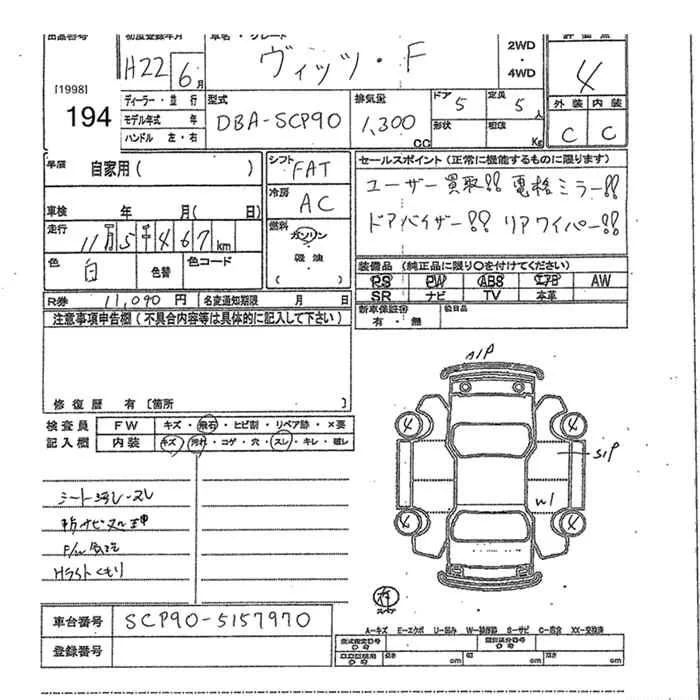 出品番号 初度登録年月 車名・グレード ヴィッツ・F 2WD・4WD 評価点 4
[1998]
194
H22 6月
ディーラー・並行
モデル年式 年
ハンドル 左・右
型式 DBA-SCP90
排気量 1,300 CC
ドア 5 定員 5人
形状 積載 Kg
外装 内装
C C
車歴 自家用( )
シフト FAT
セールスポイント(正常に機能するものに限ります)
ユーザー買取!! 電格ミラー!!
ドアバイザー!! リアワイパー!!
車検 年 月( 日)
冷房 AC
走行 11万5千467km
燃料 ガソリン・軽油・( )
色 白 色替 色コード
装備品(純正品に限り〇を付けてください)
PS PW ABS エアB AW
SR ナビ TV 本革
R券 11,090円 名変通知期限 月 日
新車保証書 有・無
注意事項申告欄(不具合内容等は具体的に記入して下さい)
修復歴 有[箇所
検査員記入欄
FW キズ・飛石・ヒビ割・リペア跡・×要
内装 キズ・汚れ・コゲ・穴・スレ・キレ・破れ
A1P
4 4
S1P
W1
4 4
シート汚レ・スレ
Hライトくもり
車台番号 SCP90-5157970
登録番号
A-キズ E-エクボ U-凹み W-補修跡 S-サビ C-腐食 XX-交換済
型式指定番号 類別区分番号
長さ cm 幅さ cm 高さ cm